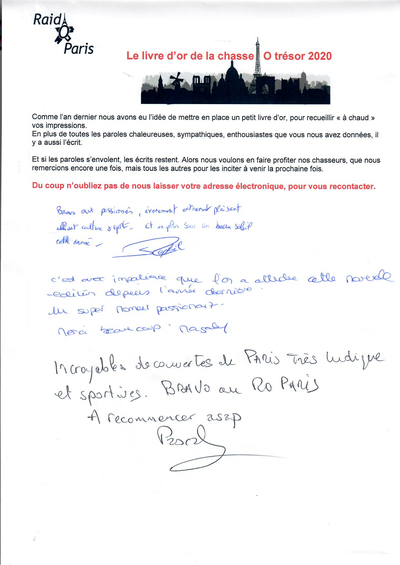 Raid
Paris
Le livre d'or de la chasse O trésor 2020
Comme l'an dernier nous avons eu l'idée de mettre en place un petit livre d'or, pour recueillir « à chaud »
vos impressions.
En plus de toutes les paroles chaleureuses, sympathiques, enthousiastes que vous nous avez données, il
y a aussi l'écrit.
Et si les paroles s'envolent, les écrits restent. Alors nous voulons en faire profiter nos chasseurs, que nous
remercions encore une fois, mais tous les autres pour les inciter à venir la prochaine fois.
Du coup n'oubliez pas de nous laisser votre adresse électronique, pour vous recontacter.
Bravo aux passionnés, évènement
alliant culture et en plus sous un beau soleil
cette année.
c'est avec impatience que l'on a attendu cette nouvelle
édition depuis l'année dernière.
Un super moment passionnant.
Merci beaucoup. Magaly
Incroyables découvertes de PARIS très ludique
et sportives. BRAVO au RO PARIS
A recommencer asap